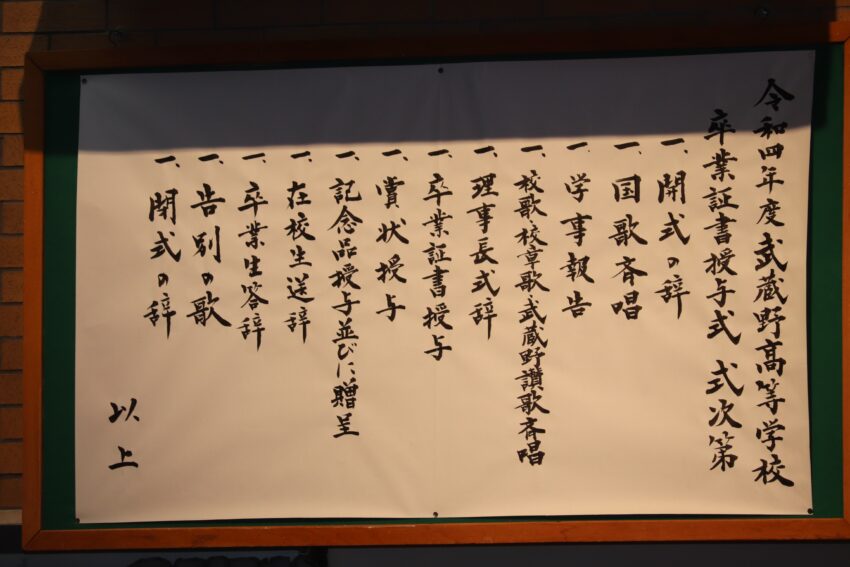 令和四年度武蔵野高等学校
卒業証書授与式 式次第
一、開式の辞
一、国歌斉唱
一、学事報告
一、校歌校章歌武蔵野讃歌斉唱
一、理事長式辞
一、卒業証書授与
一、賞状授与
一、記念品授与並びに贈呈
一、在校生送辞
一、卒業生答辞
一、告別の歌
一、閉式の辞
以上